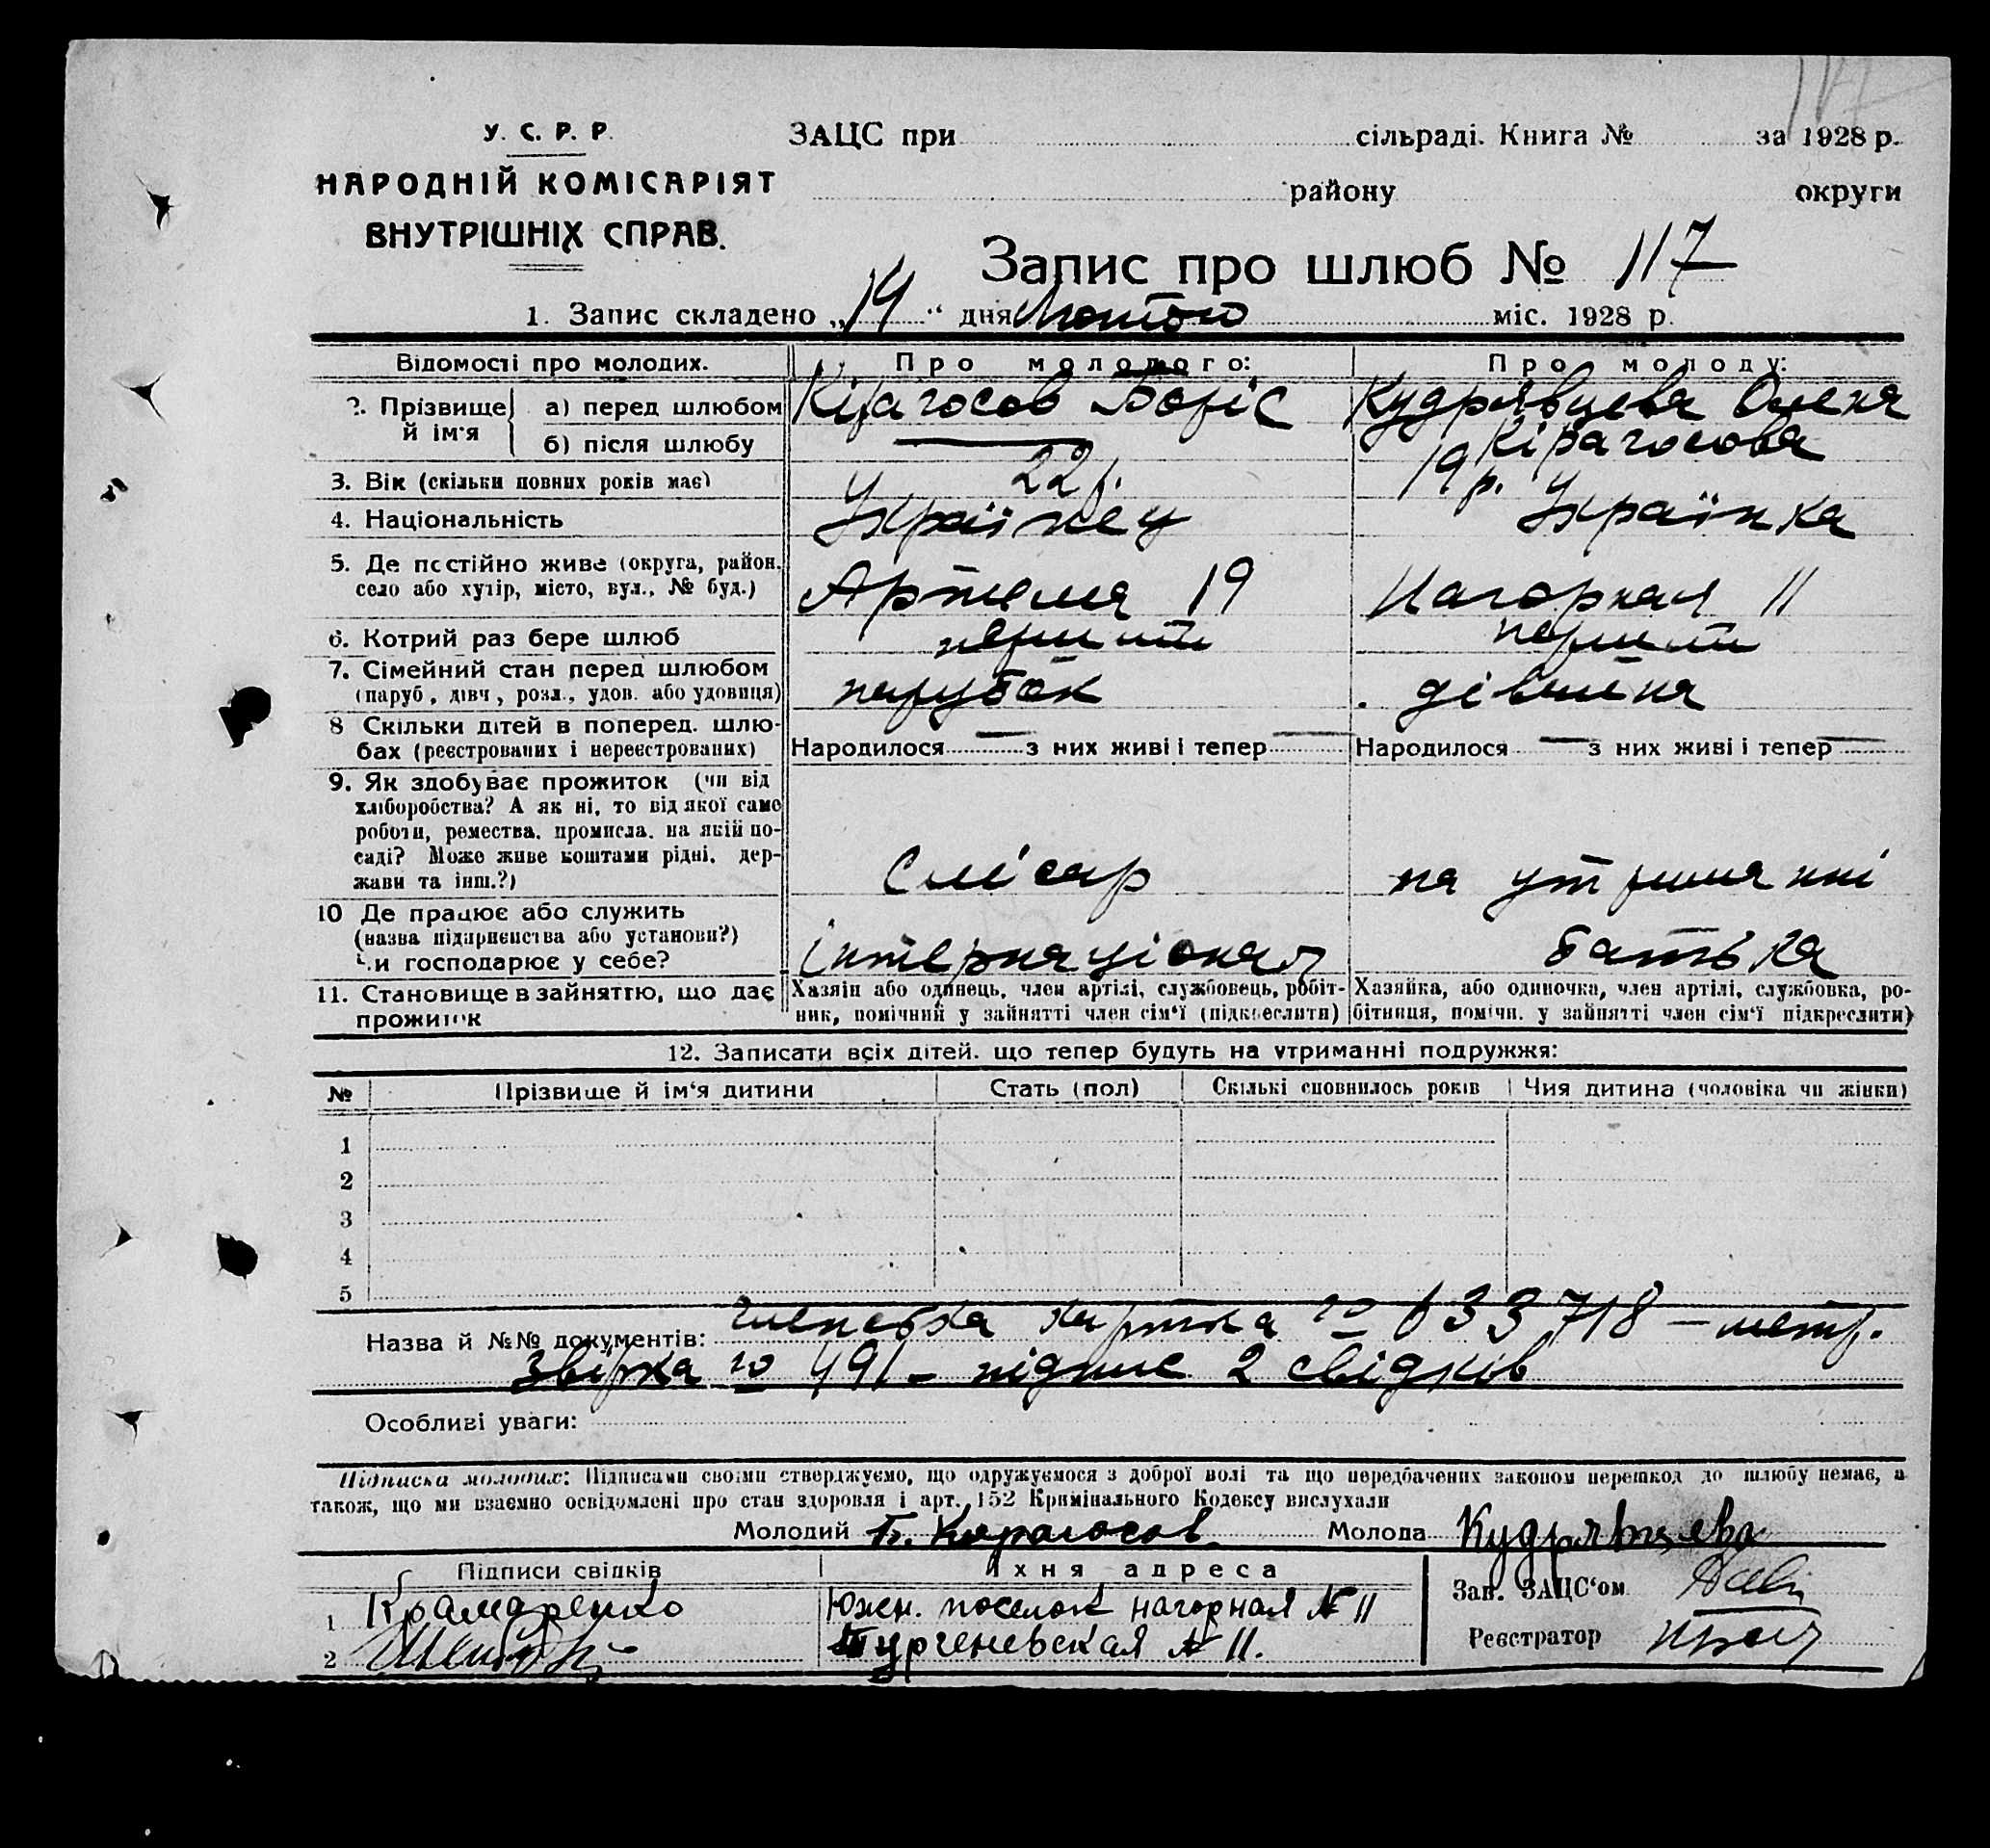 У. С. Р. Р.
НАРОДНІЙ КОМІСАРІЯТ
ВНУТРІШНІХ СПРАВ.
ЗАЦС при сільраді. Книга № за 1928 р.
району округи
Запис про шлюб № 117
1. Запис складено „14“ дня Лютого міс. 1928 р.
Відомості про молодих. Про молодого: Про молоду:
2. Прізвище й ім'я а) перед шлюбом Кірагосов Боріс Кудрявцева Олена
б) після шлюбу Кірагосова
3. Вік (скільки повних років має) 22 р. 19 р.
4. Національність Українец Українка
5. Де постійно живе (округа, район,
село або хутір, місто, вул., № буд.) Артема 19 Нагорная 11
6. Котрий раз бере шлюб перший перший
7. Сімейний стан перед шлюбом
(паруб., дівч., розл., удов. або удовиця) парубок дівчина
8 Скільки дітей в поперед. шлю-
бах (реєстрованих і нереєстрованих) Народилося — з них живі і тепер — Народилося — з них живі і тепер —
9. Як здобуває прожиток (чи від
хліборобства? А як ні, то від якої само
роботи, ремества, промисла, на якій по-
саді? Може живе коштами рідні, дер-
жави та інш.?) Слісар на утриманні
10 Де працює або служить
(назва підприємства або установи?)
Чи господарює у себе? Інтернаціонал батька
11. Становище в зайняттю, що дає
прожиток
Хазяїн або одинець, член артілі, службовець, робіт-
ник, помічний у зайнятті член сім'ї (підкреслити)
Хазяйка, або одиночка, член артілі, службовка, ро-
бітниця, помічн. у зайнятті член сім'ї підкреслити)
12. Записати всіх дітей, що тепер будуть на утриманні подружжя:
№ Прізвище й ім'я дитини Стать (пол) Скількі сповнилось років Чия дитина (чоловіка чи жінки)
1
2
3
4
5
Назва й №№ документів: членська картка № 633718 — метр.
Звірка № 491 – підпис 2 свідків
Особливі уваги:
Підписка молодих: Підписами своїми стверджуємо, що одружуємося з доброї волі та що передбачених законом перешкод до шлюбу немає, а
також, що ми взаємно освідомлені про стан здоровля і арт. 152 Кримінального Кодексу вислухали
Молодий Б. Кирагосов Молода Кудрявцева
Підписи свідків Їхня адреса
1 Крамаренко Южн. поселок нагорная № 11
2 Тургеневская № 11.
Зав. ЗАЦС'ом
Реєстратор